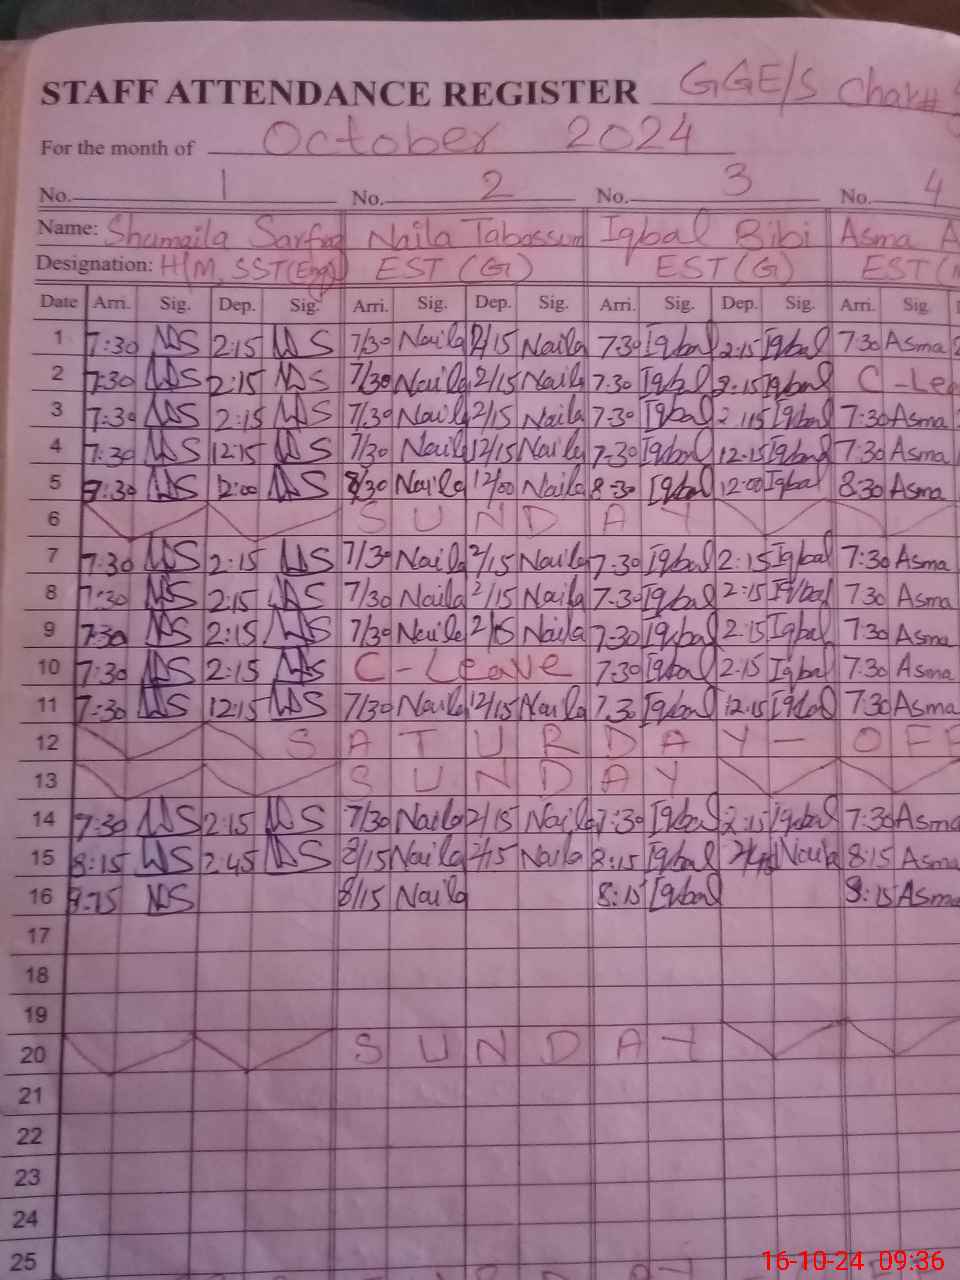 STAFF ATTENDANCE REGISTER GGE/S Chak#
For the month of October 2024
No. 1 No. 2 No. 3 No. 4
Name: Shumaila Sarfraz Naila Tabassum Iqbal Bibi Asma A
Designation: H/M, SST(Eng) EST (G) EST (G) EST(
Date Arri. Sig. Dep. Sig. Arri. Sig. Dep. Sig. Arri. Sig. Dep. Sig. Arri. Sig
1 7:30 2:15 7/30 Naila 2/15 Naila 7-30 Iqbal 2:15 Iqbal 7:30 Asma
2 7:30 2:15 7/30 Naila 2/15 Naila 7.30 Iqbal 2.15 Iqbal C-Lea
3 7:30 2:15 7/30 Naila 2/15 Naila 7-30 Iqbal 2:15 Iqbal 7:30 Asma
4 7:30 12:15 7/30 Naila 12/15 Naila 7-30 Iqbal 12.15 Iqbal 7:30 Asma
5 12:00 8/30 Naila 12/00 Naila 8-30 Iqbal 12:00 Iqbal 8:30 Asma
6 SUNDAY
7 7:30 2:15 7/30 Naila 2/15 Naila 7-30 Iqbal 2:15 Iqbal 7:30 Asma
8 7:30 2:15 7/30 Naila 2/15 Naila 7-30 Iqbal 2:15 Iqbal 7:30 Asma
9 7:30 2:15 7/30 Naila 2/15 Naila 7-30 Iqbal 2:15 Iqbal 7:30 Asma
10 7:30 2:15 C-Leave 7.30 Iqbal 2.15 Iqbal 7:30 Asma
11 7:30 12:15 7/30 Naila 12/15 Naila 7.30 Iqbal 12.15 Iqbal 7:30 Asma
12 SATURDAY - OFF
13 SUNDAY
14 7:30 2:15 7/30 Naila 2/15 Naila 7:30 Iqbal 2:15 Iqbal 7:30 Asma
15 8:15 2:45 8/15 Naila 2/15 Naila 8:15 Iqbal Naila 8:15 Asma
16 8:15 8/15 Naila 8:15 Iqbal 8:15 Asma
17
18
19
20 SUNDAY
21
22
23
24
25
16-10-24 09:36